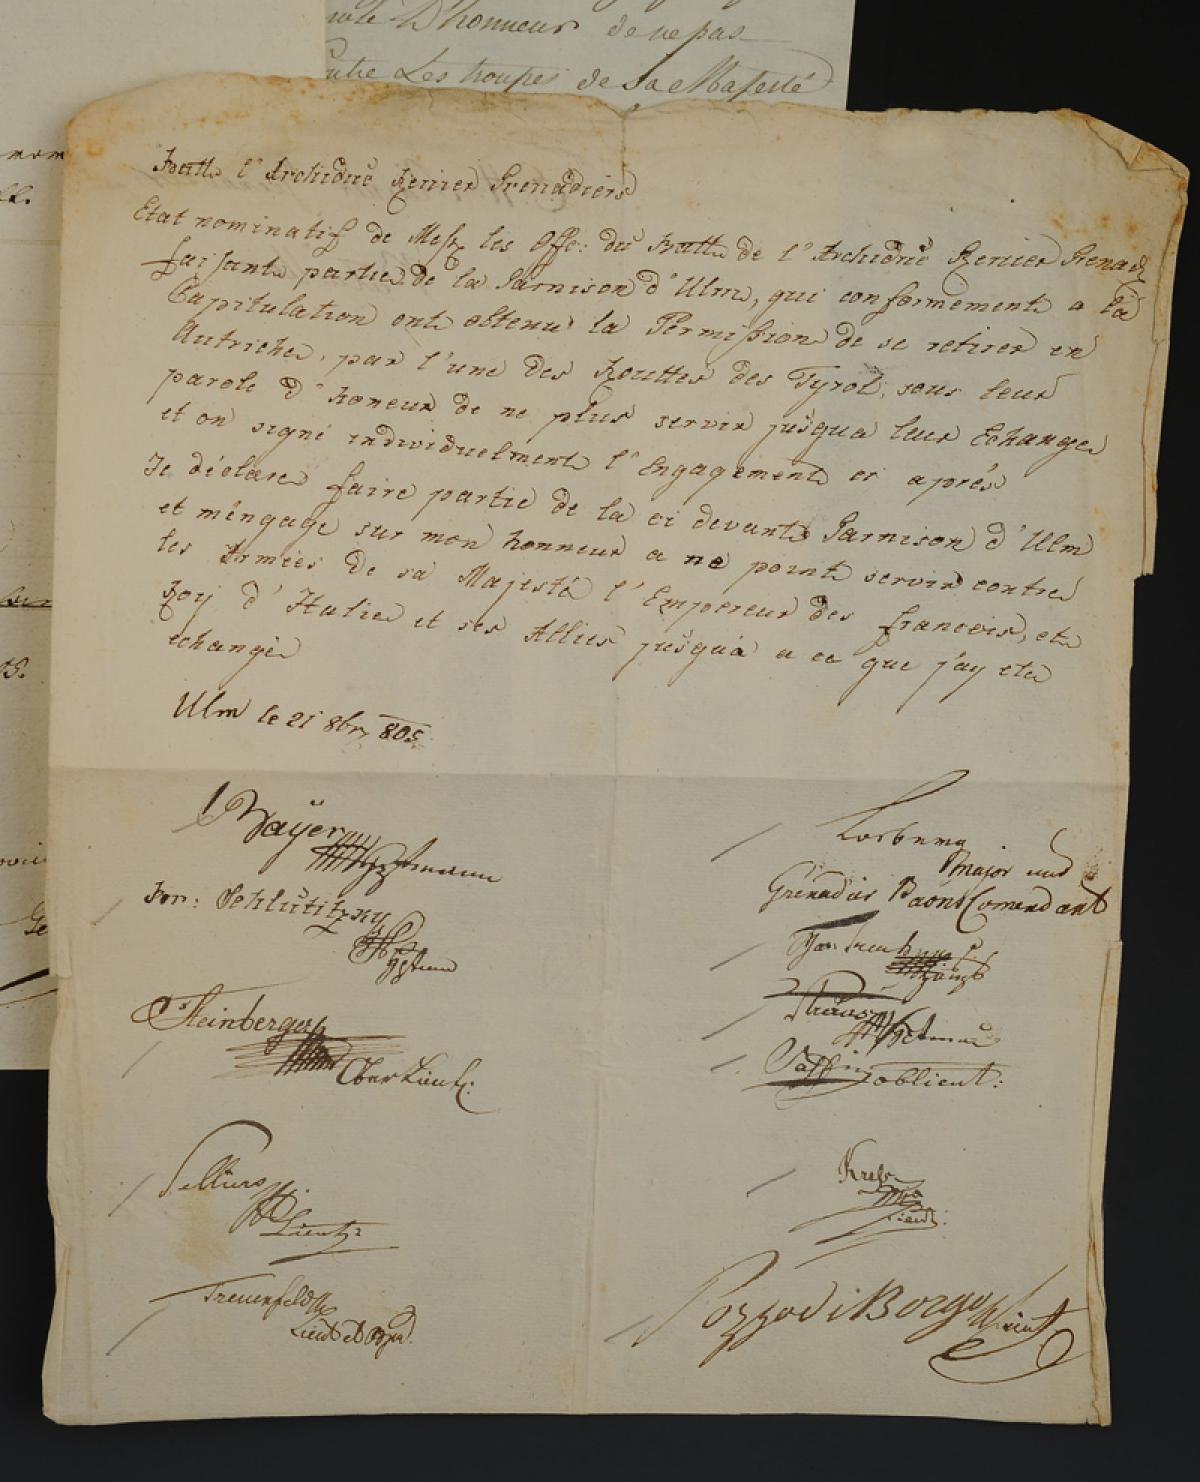 role D'honneur de ne pas
contre Les troupes de Sa Majesté
Batt: l'Archiduc Renier Grenadiers
Etat nominatif de Mess: les Offe: du Batt: de l'Archiduc Renier Grenad:
faisant partie de la Garnison d'Ulm, qui conformement a la
Capitulation ont obtenu la Permission de se retirer en
Autriche, par l'une des Routtes des Tyrol, sous leur
parole d'honeur de ne plus servir jusqua leur Echange
et on signé individuelment l'Engagement ci aprés
Je déclare faire partie de la ci devant Garnison d'Ulm
et méngage sur mon honneur a ne point servir contre
les Armées de sa Majesté l'Empereur des francois, et
Roy d'Italie et ses Alliés jusqu'á a ce que j'ay ete
echangé
Ulm le 21 8br 805
Bayer
Hptmann
For: Schlutitzky
Steinberger
Oberlieut:
Lieut:
Treuenfeld
Lieut
Major und
Grenadir Baons Comendant
oblieut:
Kress
Lieut:
Pozzo di Borgo Lieut